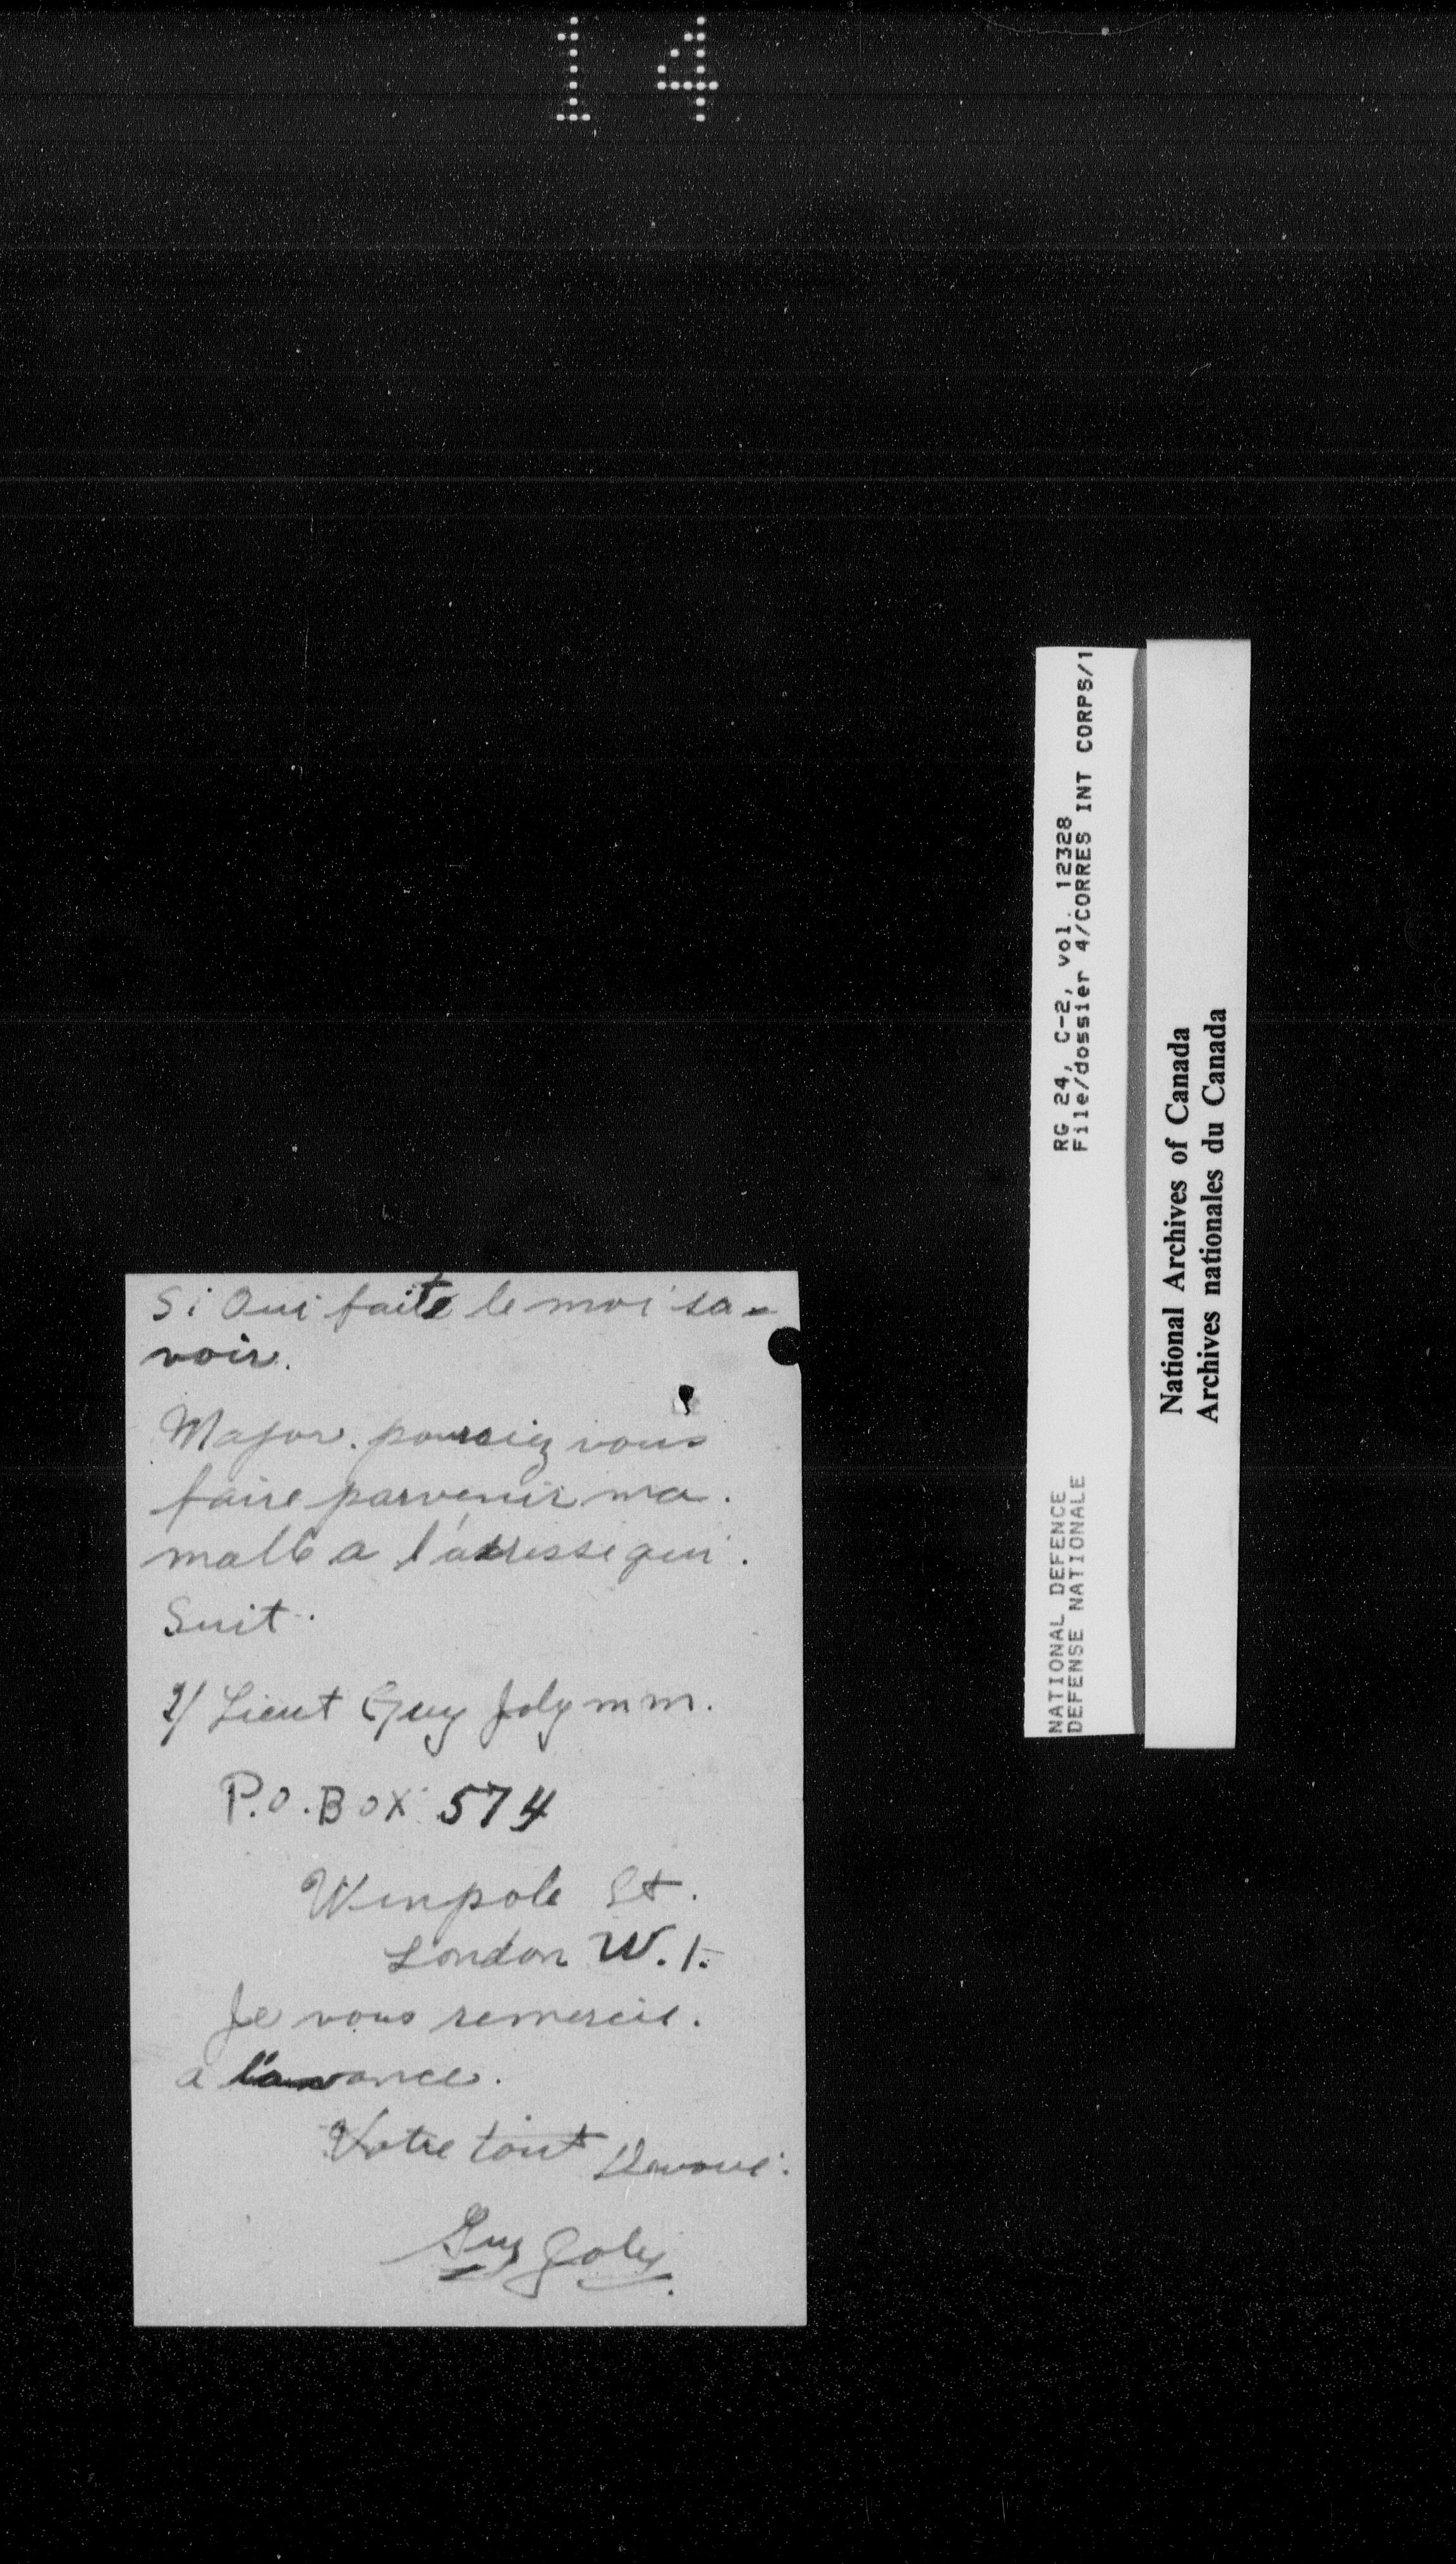 14
Si Oui faite le moi sa-
voir.
Major. pourriez vous
faire parvenir ma.
malle a l'adresse qui.
Suit.
2/ Lieut Guy Joly m m.
P.O. BOX 574
Winpole St.
London W.1.
Je vous remercie.
a l'avance.
Votre tout Devoué.
Guy Joly
RG 24, C-2, vol. 12328
File/dossier 4/CORRES INT CORPS/1
NATIONAL DEFENCE
DEFENSE NATIONALE
National Archives of Canada
Archives nationales du Canada